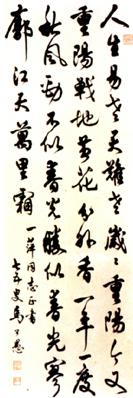 人生易老天難老歲〻重陽今又
重陽戰地黄花分外香一年一度
秋風勁不似春光勝似春光寥
廓江天萬里霜
一萍同志正書
七五叟馬公愚